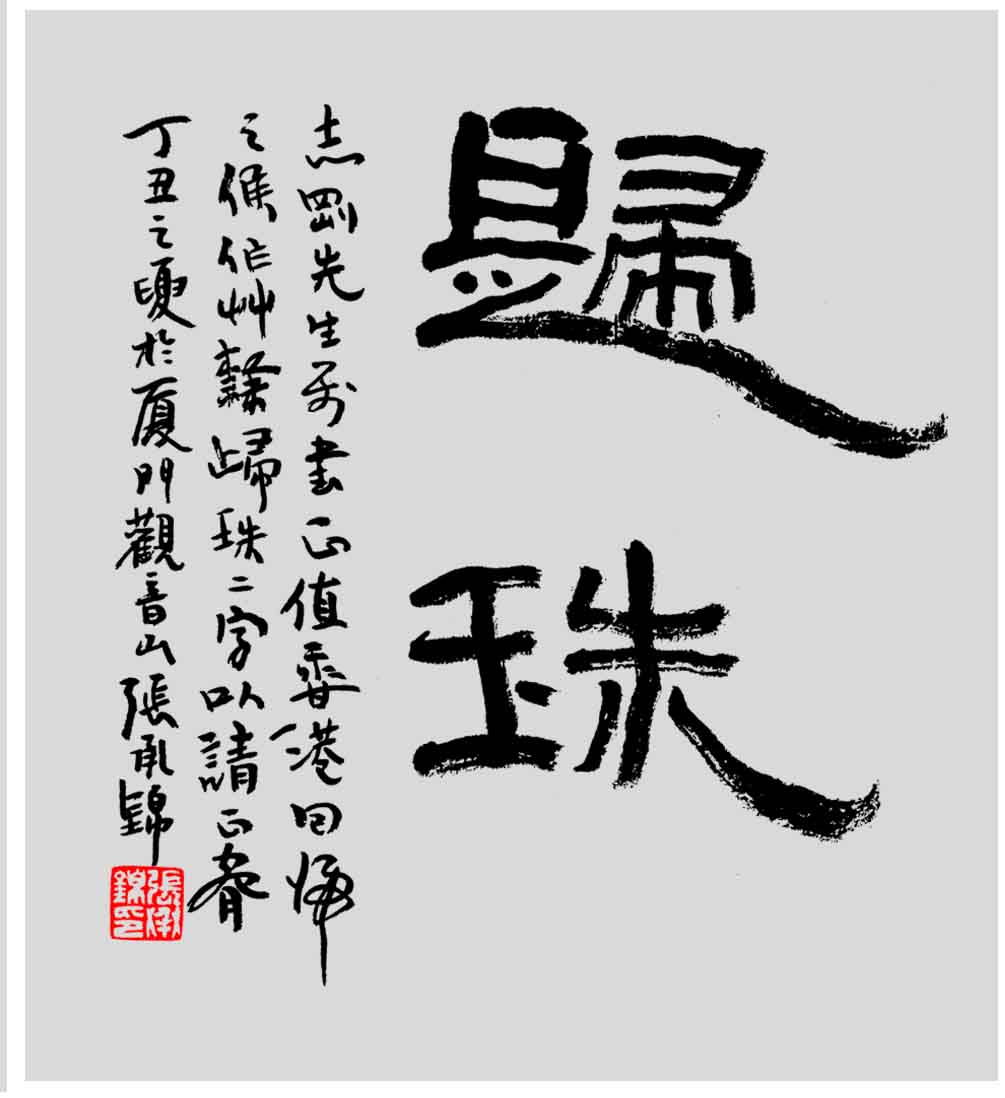 歸
珠
志剛先生善書正值香港回歸
之候作艸隸歸珠二字以請正眘
丁丑之夏於厦門觀音山張承錦
張承錦印